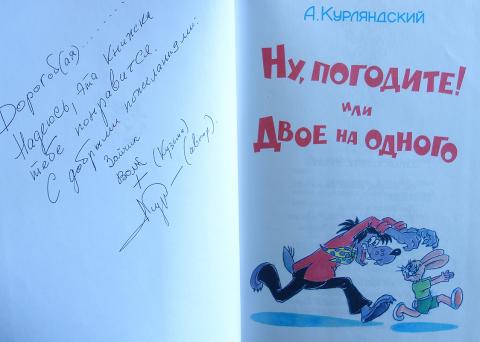 Дорогой(ая).......
Надеюсь, эта книжка
тебе понравится.
С добрыми пожеланиями:
Зайчик
Волк (Кузина)
+
— (автор).
А.Курляндский
Ну, погодите!
или
Двое на одного